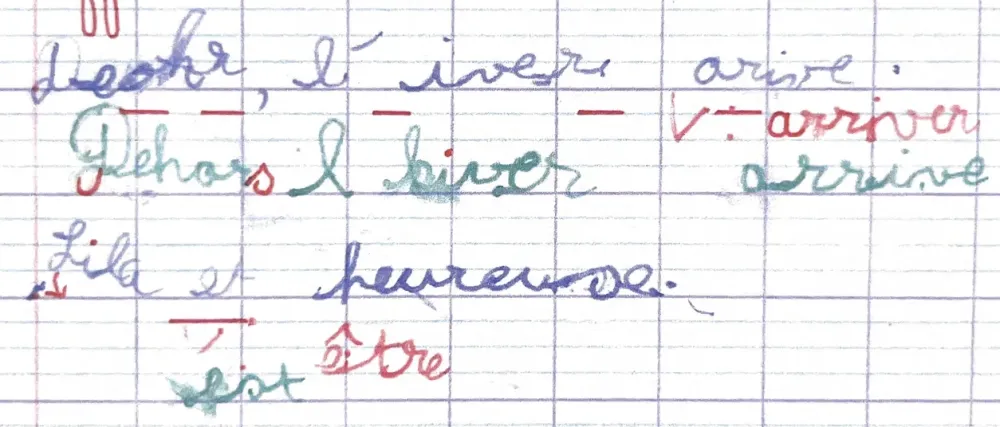 Deohr, l' ivers arive.
V: arriver
Dehors l hiver arrive
Lila et heureuse.
être
est